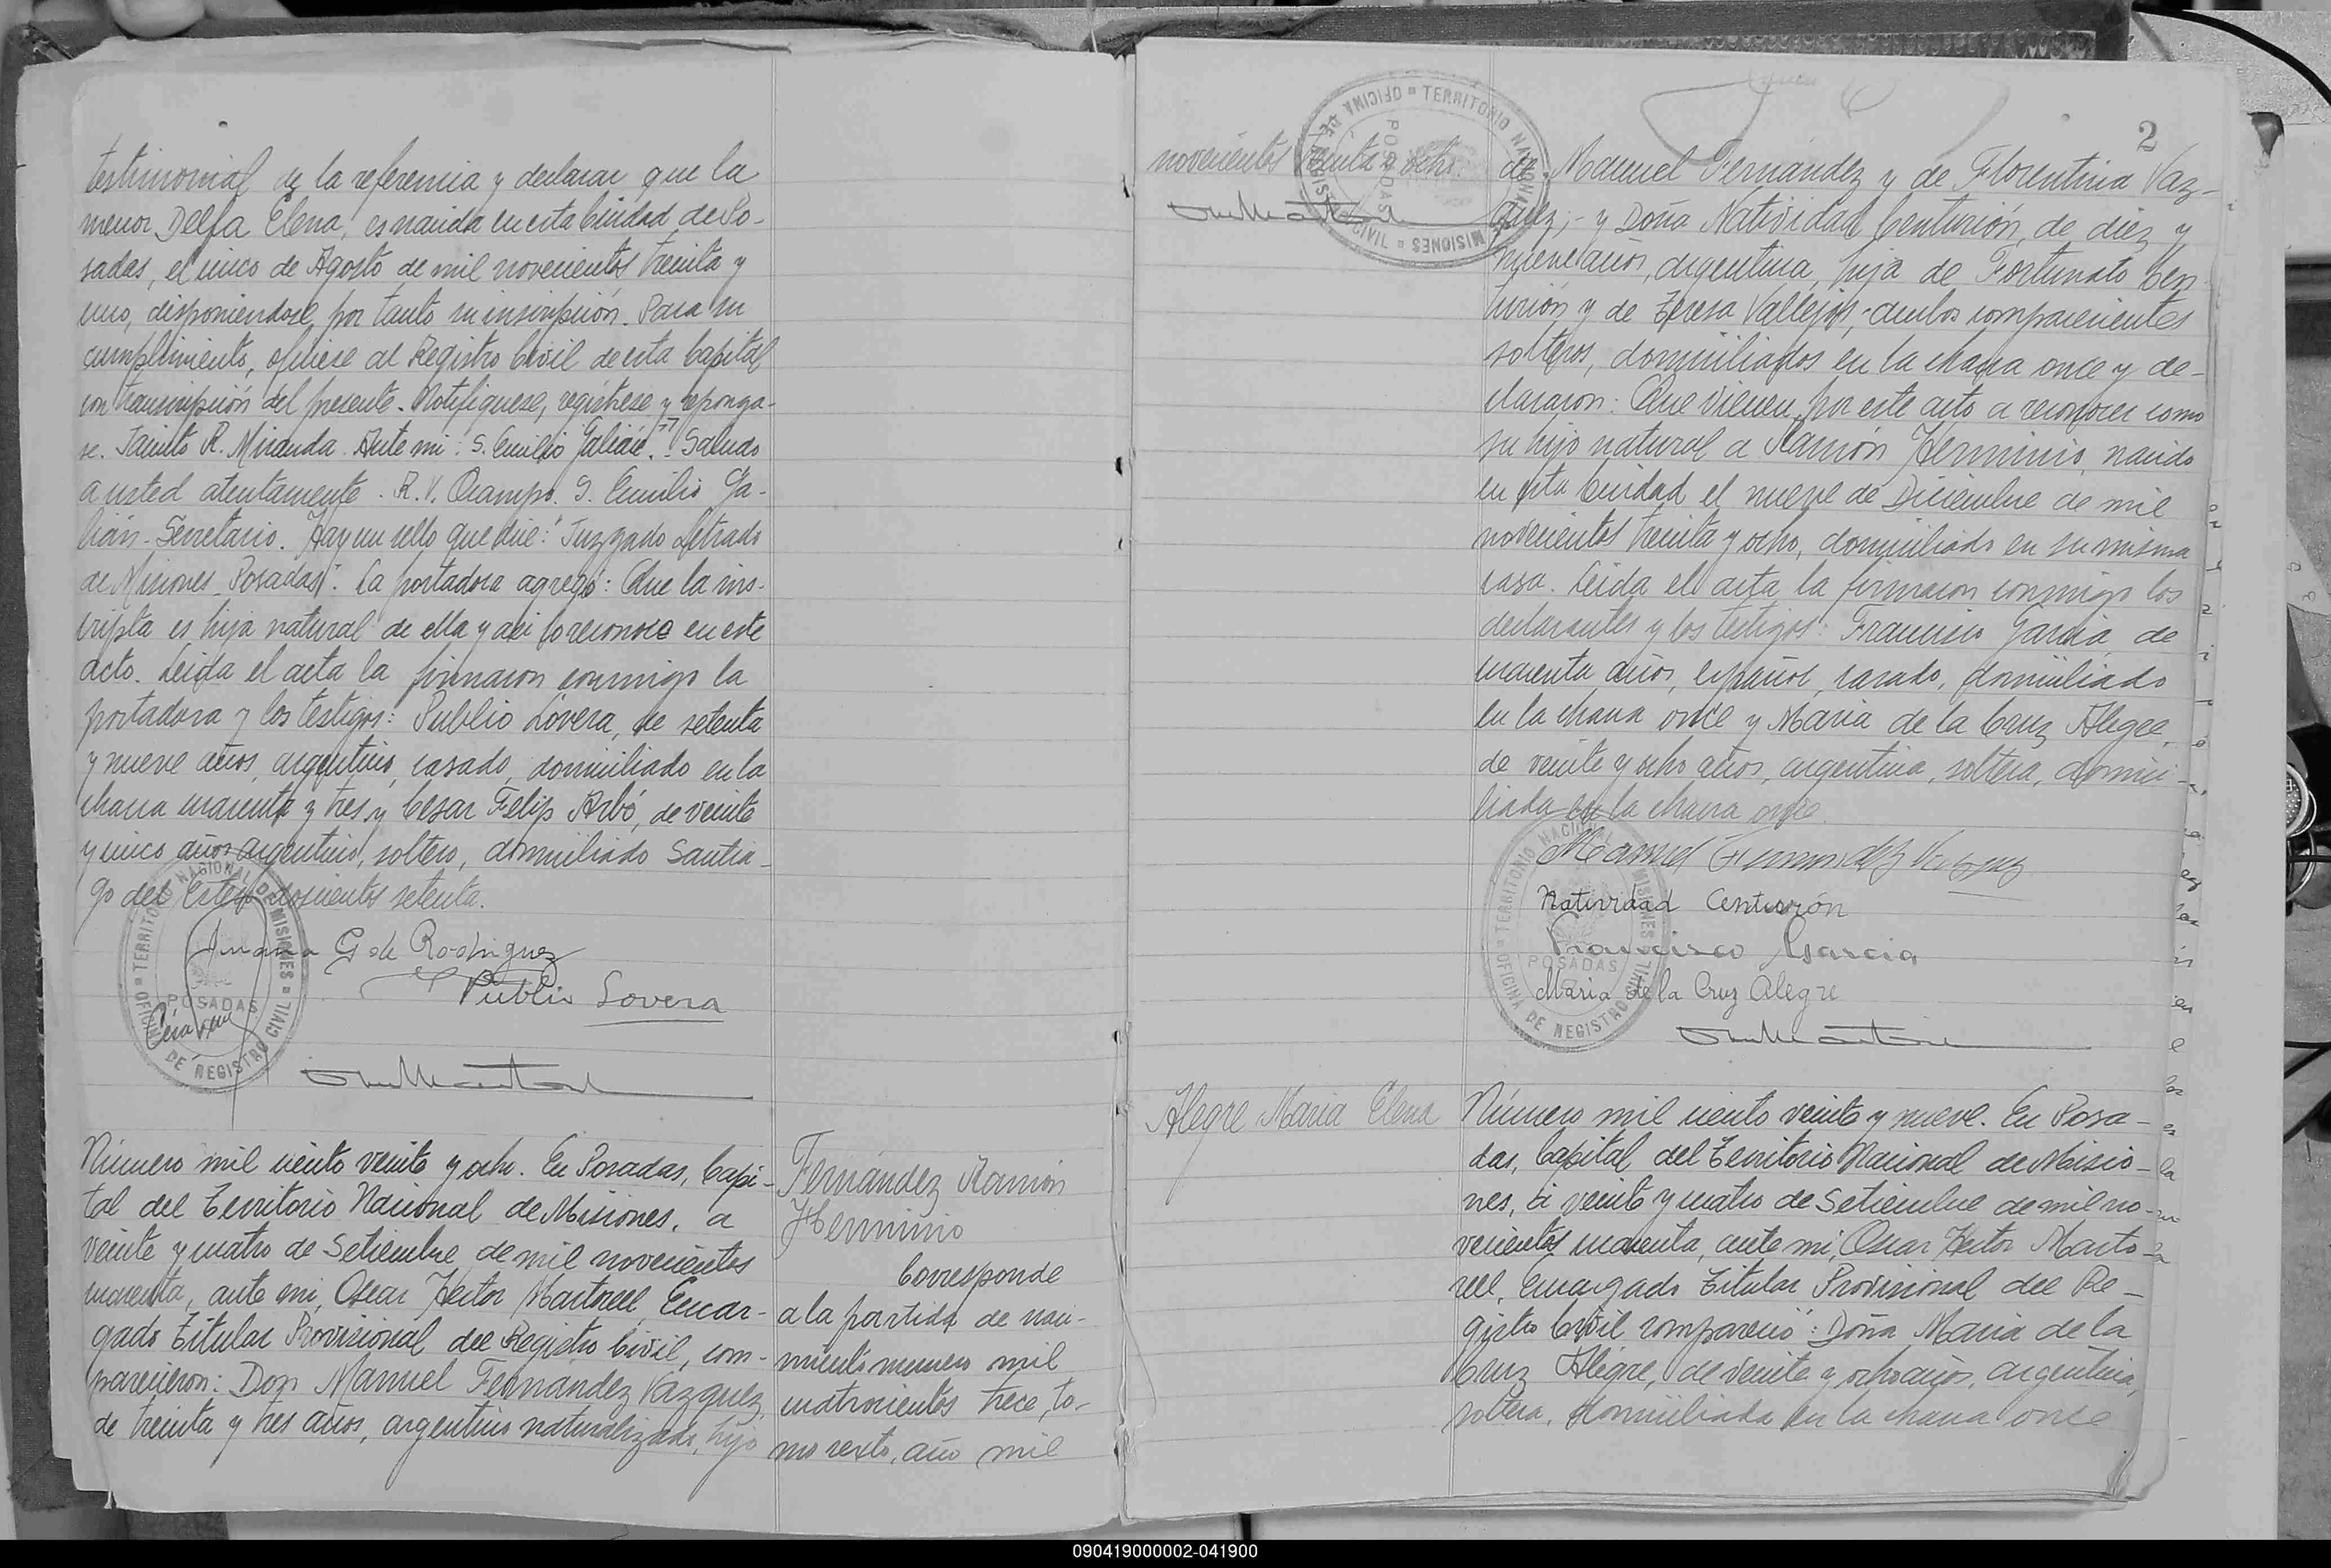 testimonial de la referencia y declarar que la
menor Delfa Elena, es nacida en esta Ciudad de Po-
sadas, el cinco de Agosto de mil novecientos treinta y
uno, disponiendose por tanto su inscripción. Para su
cumplimiento, ofíciese al Registro Civil de esta Capital
con transcripción del presente. Notifíquese, regístrese y reponga-
se. Jacinto R. Miranda. Ante mi: S. Emilio Galián." Saludo
a usted atentamente. R. V. Ocampo. S. Emilio Ga-
lián - Secretario. Hay un sello que dice: "Juzgado Letrado
de Misiones Posadas". La portadora agregó: Que la ins-
cripta es hija natural de ella y asi lo reconoce en este
acto. Leida el acta la firmaron conmigo la
portadora y los testigos: Publio Lovera, de setenta
y nueve años, argentino, casado, domiciliado en la
chacra cuarenta y tres y Cesar Felip Arbó, de veinte
y cinco años argentino, soltero, domiciliado Santia-
go del Estero doscientos setenta.
Juana G de Rodriguez
Publio Lovera
OFICINA DE REGISTRO CIVIL TERRITORIO NACIONAL DE MISIONES
POSADAS
Número mil ciento veinte y ocho. En Posadas, Capi-
tal del Territorio Nacional de Misiones, a
veinte y cuatro de Setiembre de mil novecientos
cuarenta, ante mi, Oscar Hector Martorell, Encar-
gado Titular Provisional del Registro Civil, com-
parecieron: Don Manuel Fernández Vázquez,
de treinta y tres años, argentino naturalizado, hijo
Fernández Ramón
Herminio
Corresponde
a la partida de naci-
miento numero mil
cuatrocientos trece, to-
mo sexto, año mil
novecientos treinta y ocho.
OFICINA DE REGISTRO CIVIL TERRITORIO NACIONAL MISIONES
POSADAS
2
de Manuel Fernández y de Florentina Vaz-
quez; - y Doña Natividad Centurión, de diez y
nueve años, argentina, hija de Fortunato Cen
turión y de Teresa Vallejos; - ambos comparecientes
solteros, domiciliados en la chacra once y de-
clararon: Que vienen por este acto a reconocer como
su hijo natural a Ramón Herminio, nacido
en esta Ciudad el nueve de Diciembre de mil
novecientos treinta y ocho, domiciliado en su misma
casa. Leida el acta la firmaron conmigo los
declarantes y los testigos: Francisco García, de
cuarenta años, español, casado, domiciliado
en la chacra once y María de la Cruz Alegre,
de veinte y ocho años, argentina, soltera, domici-
liada en la chacra once.
Manuel Fernandez Vazquez
Natividad Centurión
Francisco Garcia
Maria de la Cruz Alegre
OFICINA DE REGISTRO CIVIL TERRITORIO NACIONAL MISIONES
POSADAS
Alegre Maria Elena
Número mil ciento veinte y nueve. En Posa-
das, Capital del Territorio Nacional de Misio-
nes, a veinte y cuatro de Setiembre de mil no-
vecientos cuarenta, ante mi, Oscar Hector Marto-
rell, Encargado Titular Provisional del Re-
gistro Civil compareció: Doña Maria de la
Cruz Alegre, de veinte y ocho años, argentina,
soltera, domiciliada en la chacra once
090419000002-041900